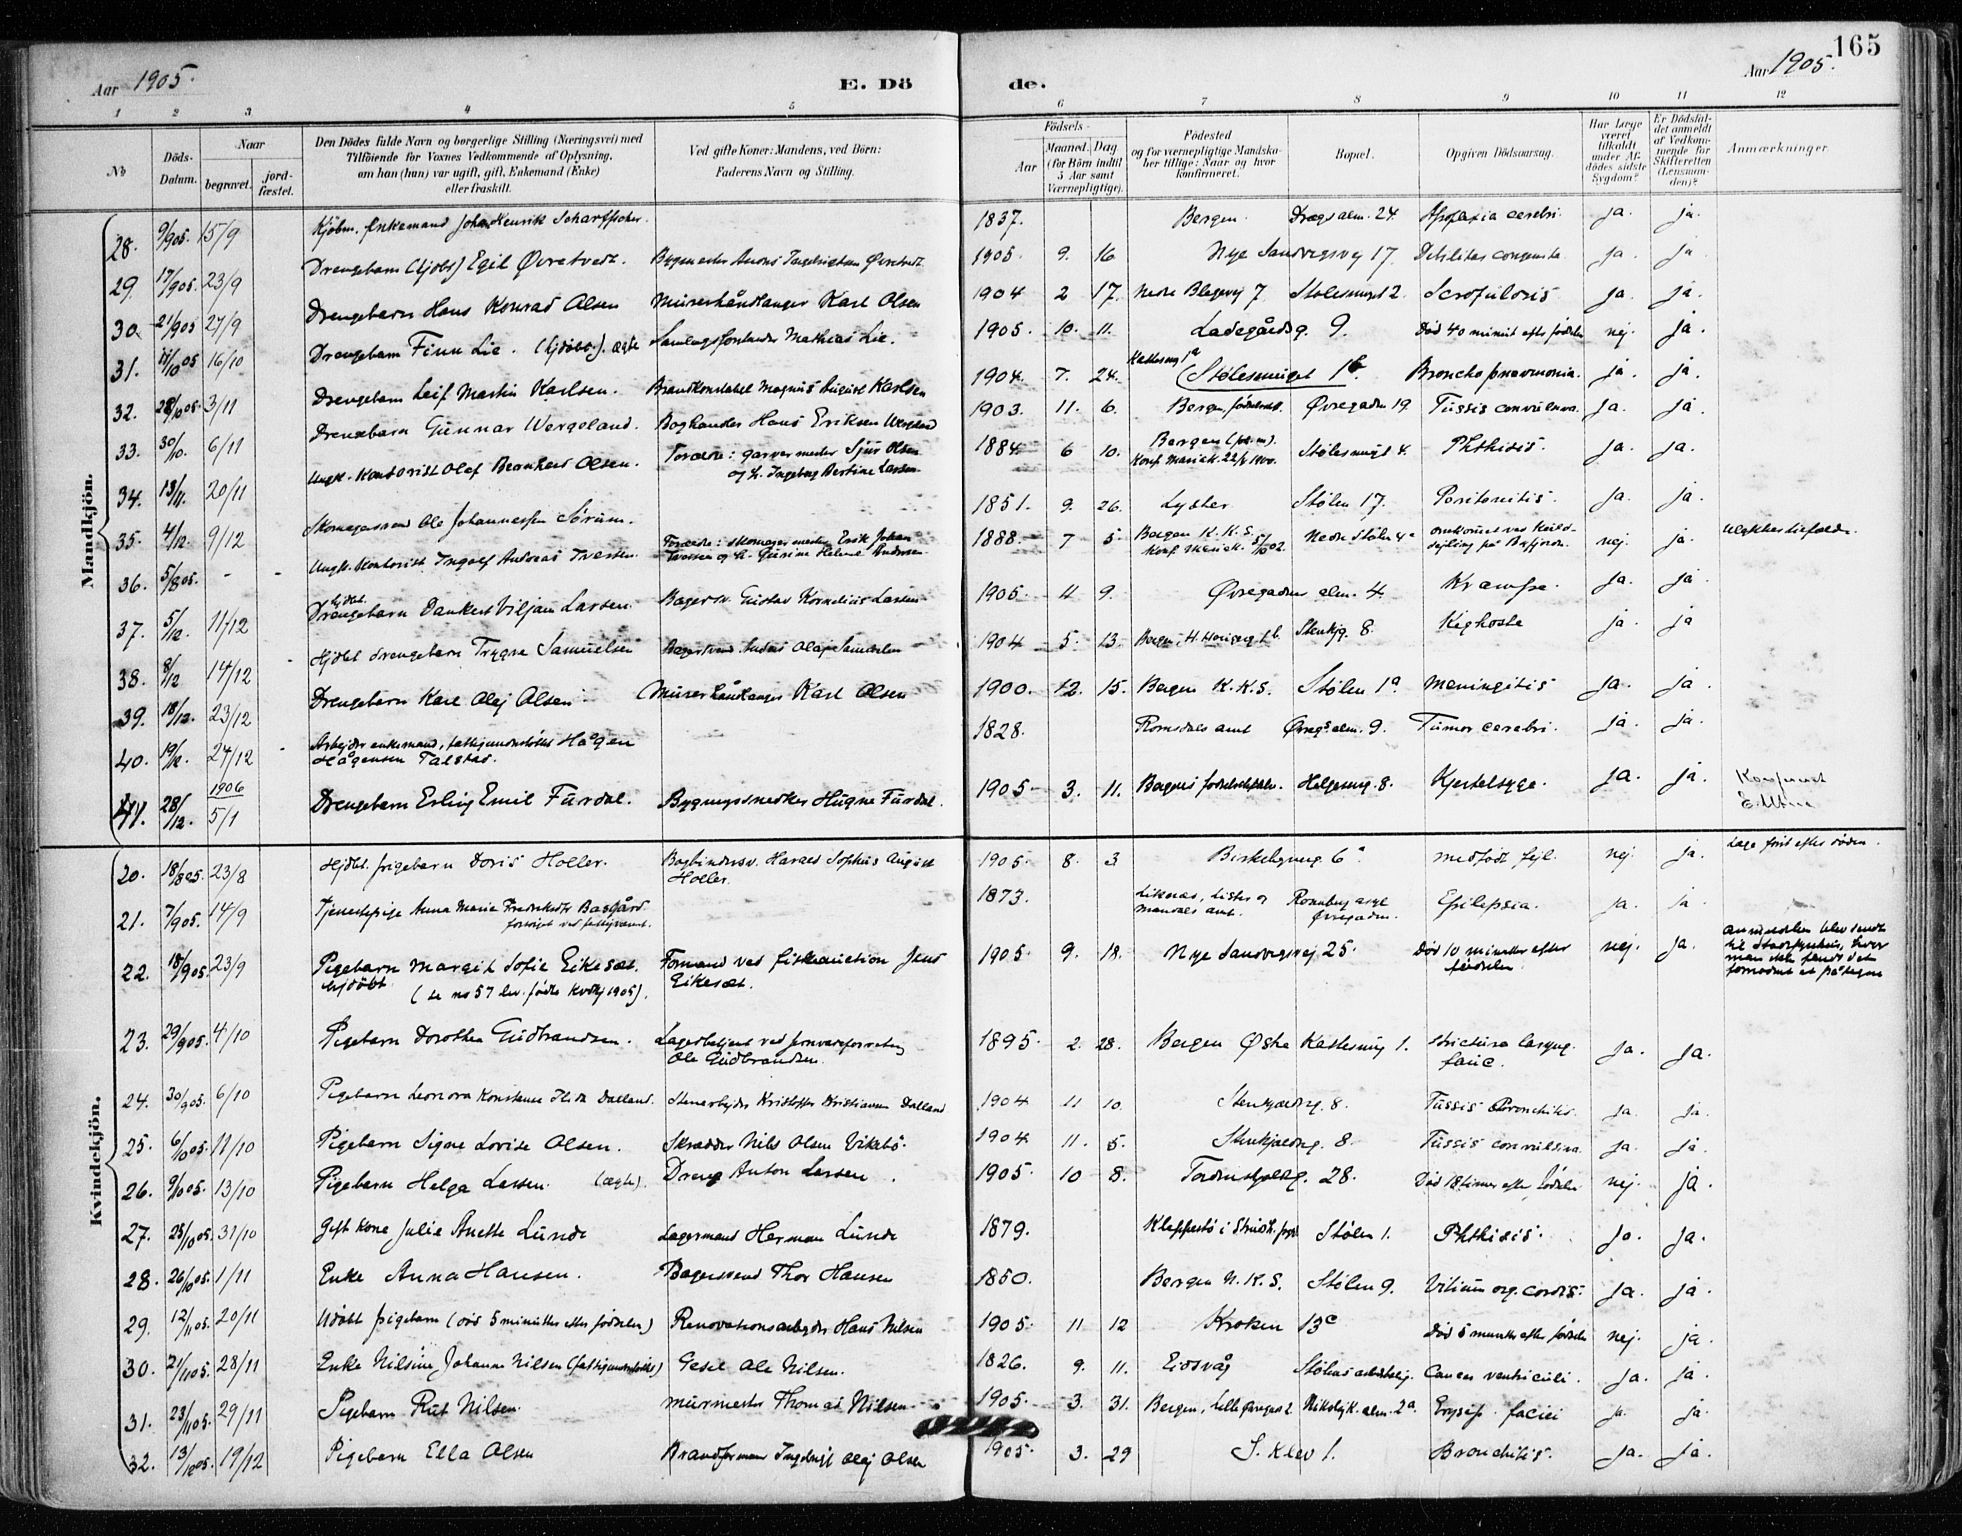 165
Aar 1905.
E. Dö
de.
Aar 1905.
1 2 3 4 5 6 7 8 9 10 11 12
No
Döds-Datum.
Naar
begravet.
jord-fæstet.
Den Dödes fulde Navn og borgerlige Stilling (Næringsvei) med
Tilföiende for Voxnes Vedkommende af Oplysning,
om han (hun) var ugift, gift, Enkemand (Enke)
eller fraskilt.
Ved gifte Koner: Mandens, ved Börn:
Faderens Navn og Stilling.
Födsels-
Aar
Maaned. Dag
(for Börn indtil
5 Aar samt
Værnepligtige).
Födested
og for værnepligtige Mandska-
ber tillige: Naar og hvor
konfirmeret.
Bopæl.
Opgiven Dödsaarsag.
Har Læge
været
tilkaldt
under Af-
dödes sidste
Sygdom?
Er Dödsfal-
det anmeldt
af Vedkom-
mende for
Skifteretten
(Lensman-
den)?
Anmærkninger.
Mandkjön.
28. 9/905. 15/9 Kjöbm. Enkemand Johan Henrik Scharffscher. 1837. Bergen. Dregs alm. 24. Apoplexia cerebri. ja. ja.
29. 17/905. 23/9 Drengebarn (hjdöbt) Egil Øvretvedt. Øvretvedt 1905. 9. 16 Nye Sandvigsvej 17. Debilitas congenita. ja. ja
30. 21/905 27/9 Drengebarn Hans Konrad Olsen Murerhåndlanger Karl Olsen 1904 2 17. Nedre Blegevej 7 Stölesmuget 2. Scrofulosis ja. ja.
31. 11/1005 16/10 Drengebarn Finn Lie. (hjdöbt). ægte Mathias Lie. 1905. 10. 11. Ladegårdsg. 9. Död 40 minut efter födselen nej. ja.
32. 28/1005. 3/11 Drengebarn Leif Martin Karlsen. Brandkonstabel Magnus August Karlsen 1904. 7. 24. Kattesmug 1a Stölesmuget 1b. Bronchopneumonia. ja. ja.
33. 30/10. 6/11 Drengebarn Gunnar Wergeland. Boghandler Hans Eriksen Wergeland 1903. 11. 6. Bergen, födselsst. Øvregaden 19. Tussis convulsiva. ja. ja.
34. 13/11. 20/11 Ungk. Kontorist Olaf Bernhard Olsen. Forældre: garvermester Sjur Olsen
og h. Ingeborg Bertine Larsen. 1884 6 10. Bergen
Konf. Mariek. 22/4 1900. Stölesmuget 4. Phthisis. ja. ja.
35. 4/12. 9/12 Skomagersvend Ole Johannessen Sörum. 1851. 9. 26. Lyster Stölen 17. Peritonitis. ja. ja.
36. 5/805. - - Ungk. Kontorist Ingolf Andreas Iversen Forældre: skomagermester Erik Johan
Iversen og h. Gurine Helene Andersen 1888. 7 5. Bergen K.K.S.
Konf. Mariek. 5/10 02. Nedre Stölen 4a omkommet ved Kuld-
sejling på Byfjorden. nej. ja. ulykkestilfælde.
37. 5/12. 11/12 hjdöbt. Drengebarn Dankert Viljam Larsen. Bagersv. Gustav Kornelius Larsen 1905. 4 9. Øvregadens alm. 4. Krampe. ja. ja
38. 8/12 14/12 Hjdöbt drengebarn Trygve Samuelsen Bagersvend Anders Olai Samuelsen 1904 5. 13. Stenkjg. 8. Kighoste ja. ja
39. 18/12. 23/12 Drengebarn Karl Olaj Olsen. Murerhåndlanger Karl Olsen 1900. 12. 15. Bergen K.K.S. Stölen 1a. Meningitis ja. ja.
40. 19/12. 24/12 Arbejder enkemand, fattigunderstöttet Hågen
Hågensen Talstad. 1828. Romsdals amt Øvregs. alm. 9. Tumor cerebri. ja. ja.
41. 28/12. 1906 5/1 Drengebarn Erling Emil Furdal. Bygningssnedker Hugne Furdal. 1905. 3. 11. Bergens födselsstift. Helgesmug. 8. Kjertelsyge. ja. ja.
Kvindekjön.
20. 18/805. 23/8 Hjdöbt. pigebarn Doris Holler. Bogbindersv. Harald Sophus August
Holler. 1905. 8. 3. Birkebgvng. 6a medfödt fejl. nej. ja. Læge först efter döden.
21. 7/905. 14/9 Tjenestepige Anna Maria Fredriksdtr Basgård.
forsörget ved fattigvæsenet. 1873. Liknæs, Lister og
Mandals amt. Rosenberg asyl
Øvregaden. Epilepsia. ja. ja.
22. 18/905. 23/9 Pigebarn Margit Sofie Eikesæt.
hjdöbt (se no 57 lev. födte kvdkj 1905). Formand ved fiskeauction Jens
Eikesæt. 1905. 9. 18. Nye Sandvigsvej 25. Död 10 minutter efter
födselen nej. ja.
23. 29/905. 4/10 Pigebarn Dorothea Gudbrandsen. Lagerbetjent ved jernvareforretning
Ole Gudbrandsen. 1895. 2. 28. Bergen Østre Kattesmug 1. strictura laryng.
fauc. ja. ja.
24. 30/905. 6/10 Pigebarn Leonora Konstanse Hilda Dalland. Stenarbejder Kristoffer Kristiansen Dalland 1904 11 10. Stenkjældrg. 8. Tussis Bronchitis. ja. ja.
25. 6/1005. 11/10 Pigebarn Signe Lovise Olsen. Skrædder Nils Olsen Vikebö. 1904. 11. 5. Stenkjældrg. 8 Tussis convulsiva. ja. ja
26. 9/1005. 13/10 Pigebarn Helga Larsen. (ægte). Dreng Anton Larsen. 1905. 10 8. Tordenskjoldsg. 28. Död 18 timer efter födselen nej. ja.
27. 25/1005. 31/10 Gift kone Julie Anette Lunde Lagermand Herman Lunde 1879. Kleppestö i Strusshavn Stölen 1. Phthisis. ja. ja.
28. 26/1005. 1/11 Enke Anna Hansen. Bagersvend Thor Hansen 1850. Bergen N.K.S. Stölen 9. Vitium org. cordis. ja. ja.
29. 12/1105. 20/11 Udöbt pigebarn (död 5 minutter efter födselen) Renovationsarbejder Hans Nilsen 1905. 11 12 Kroken 13c Död 5 minutter efter födselen nej. ja.
30. 21/1105. 28/11 Enke Nilsine Johanne Nilsen (fattigunderstöttet) Gesel Ole Nilsen. 1826. 9. 11. Eidsvåg Cancer ventriculi. ja. ja.
31. 23/1105. 29/11 Pigebarn Rut Nilsen. Murmester Thomas Nilsen 1905. 3. 31. Bergen, Lille Øvregade 2. Nikolajk. alm. 2a. Erysip. faciei ja. ja.
32. 13/1205. 19/12 Pigebarn Ella Olsen Brandformand Ingebrigt Olaj Olsen 1905. 3. 29 S. Klev 1. Bronchitis. ja. ja